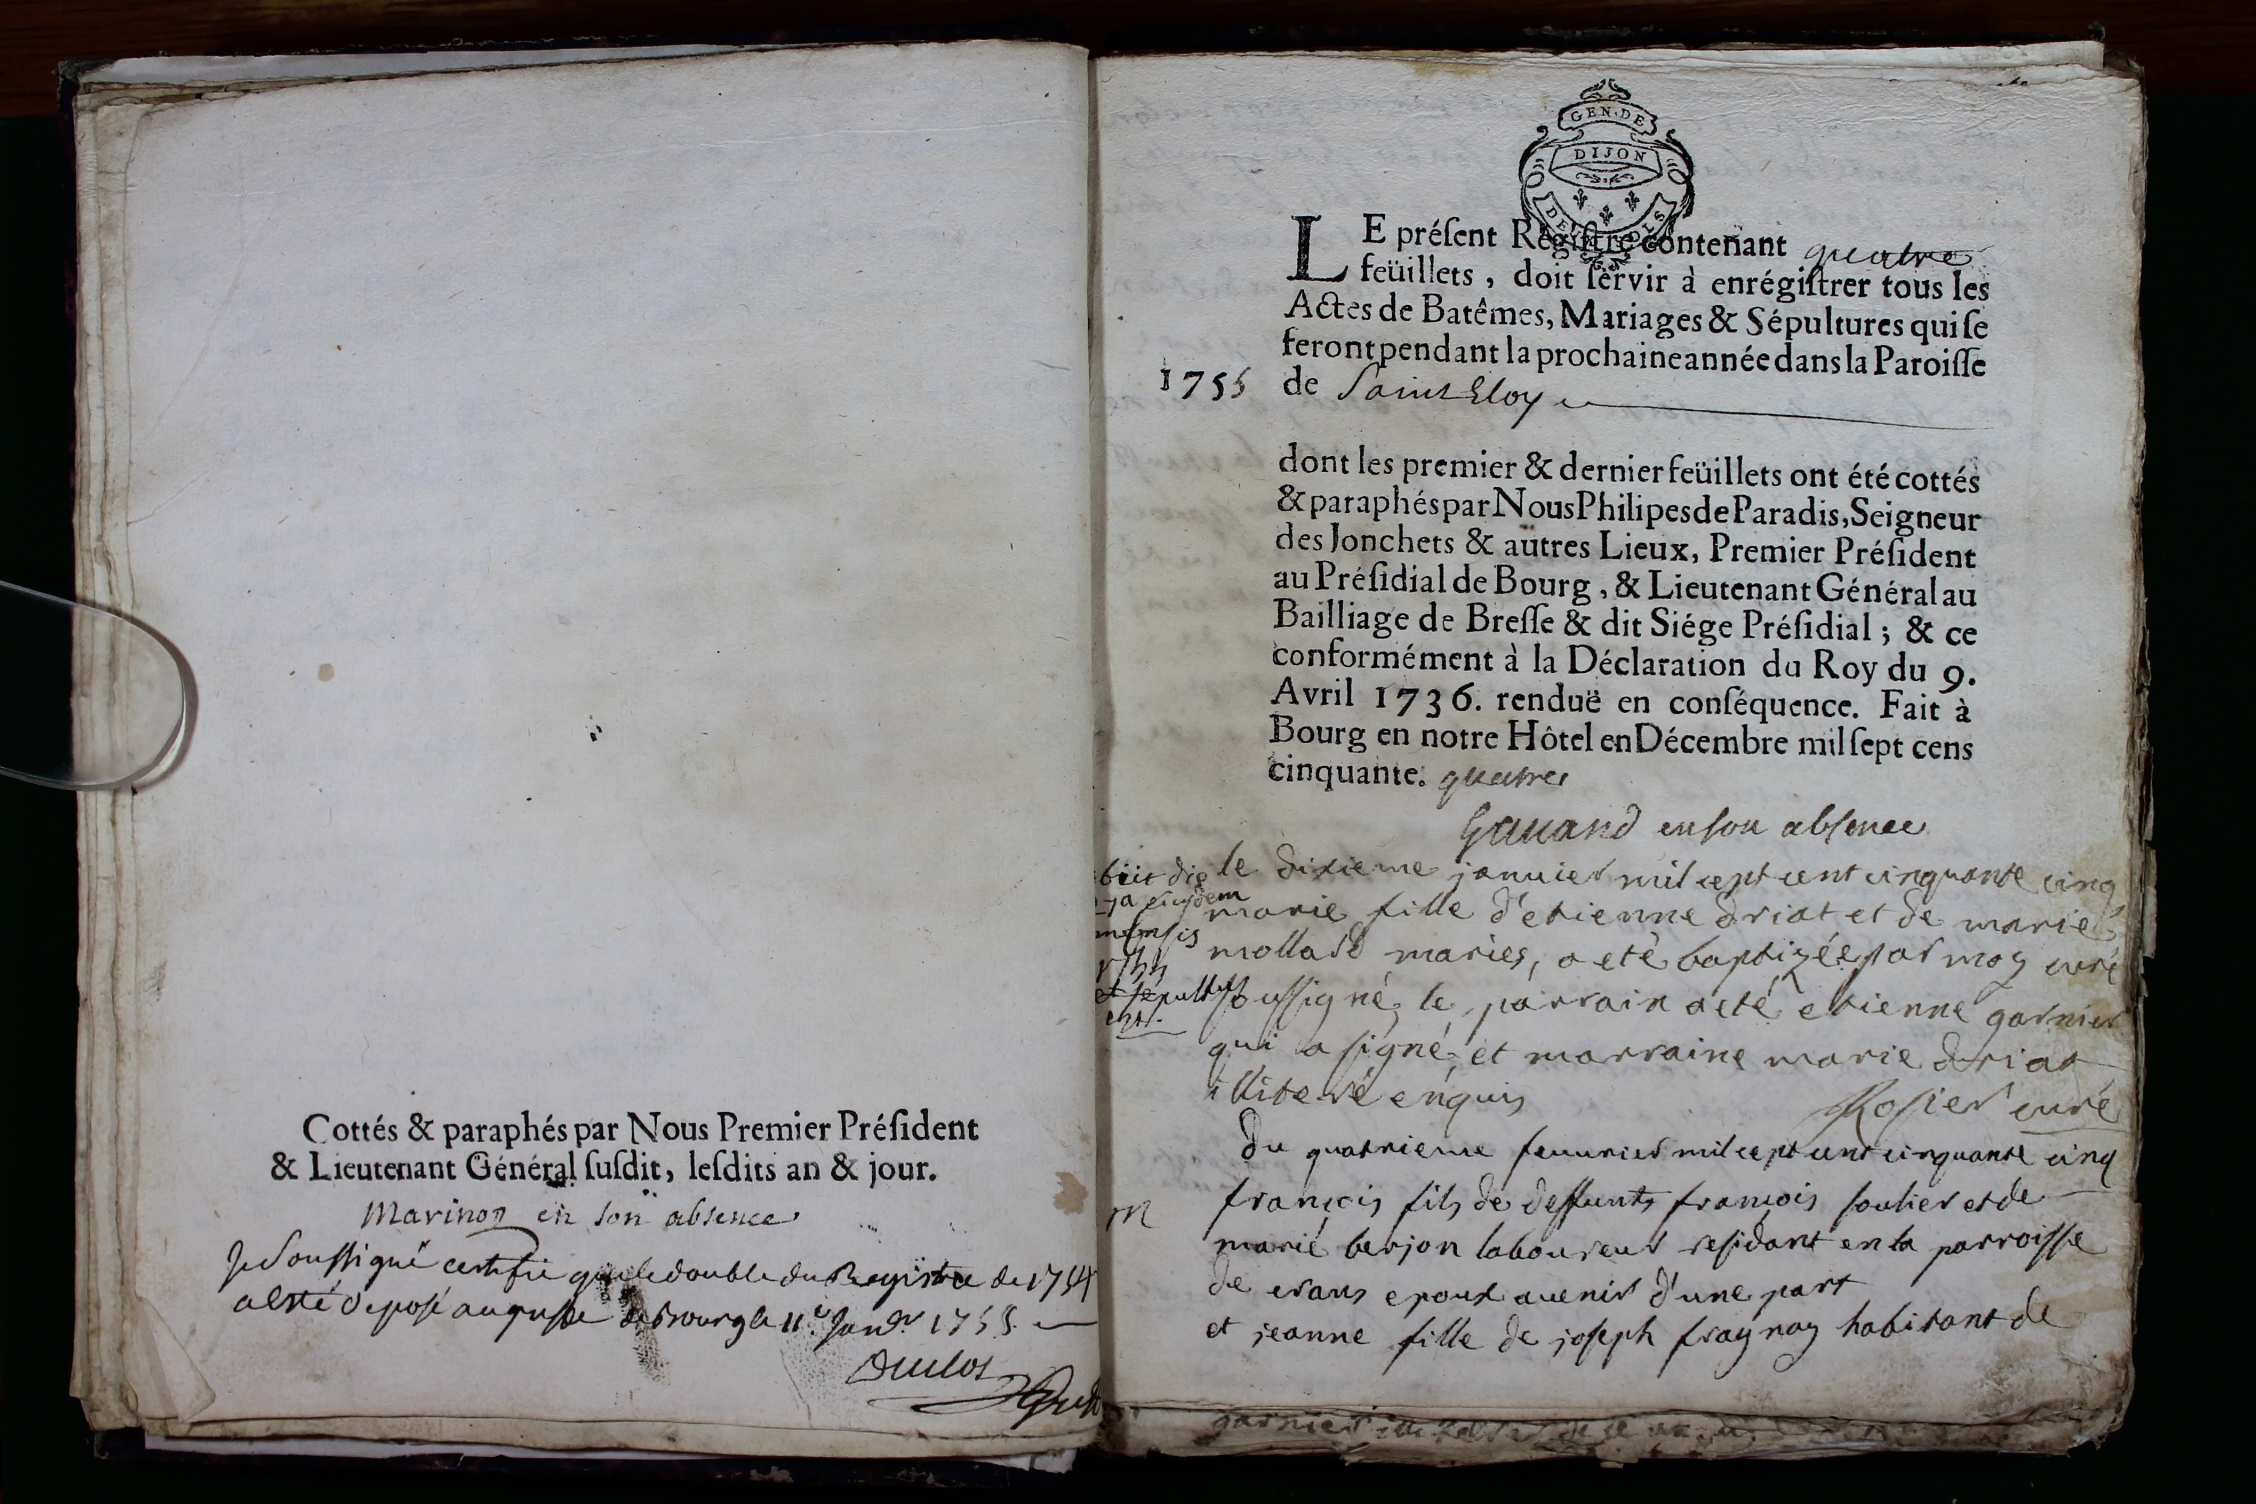 Cottés & paraphés par Nous Premier Préſident
& Lieutenant Général ſuſdit, leſdits an & jour.
Marinon en son absence
Je Soussigné certifie que le double du Registre de 1754
a esté deposé au greffe de Bourg le 11e Janv 1755.
GEN·DE
DIJON
LE préſent Régiſtre contenant quatre
feüillets, doit ſervir à enrégiſtrer tous les
Actes de Batêmes, Mariages & Sépultures qui ſe
feront pendant la prochaine année dans la Paroiſſe
1755 de Saint Eloy
dont les premier & dernier feüillets ont été cottés
& paraphés par Nous Philipes de Paradis, Seigneur
des Jonchets & aütres Lieux, Premier Préſident
au Préſidial de Bourg, & Lieutenant Général au
Bailliage de Breſſe & dit Siége Préſidial; & ce
conformément à la Déclaration du Roy du 9.
Avril 1736. renduë en conſéquence. Fait à
Bourg en notre Hôtel en Décembre mil ſept cens
cinquante. quatre
en son absence
die
ejusdem
mensis
et sepultus
est.
le dixieme janvier mil cept cent cinquante cinq
marie fille d'etienne driat et de marie
mollard mariés, a eté baptizée par moy curé
soussigné, le parrain a eté etienne garnier
qui a signé et marraine marie driat
illiteré enquis
Rosier curé
Du quatrieme feuurier mil cept cent cinquante cinq
M
françois fils de deffunts françois soulier et de
marie berjon laboureur residant en la parroisse
de crans epoux auenir d'une part
et jeanne fille de joseph fraynay habitant de
garnier